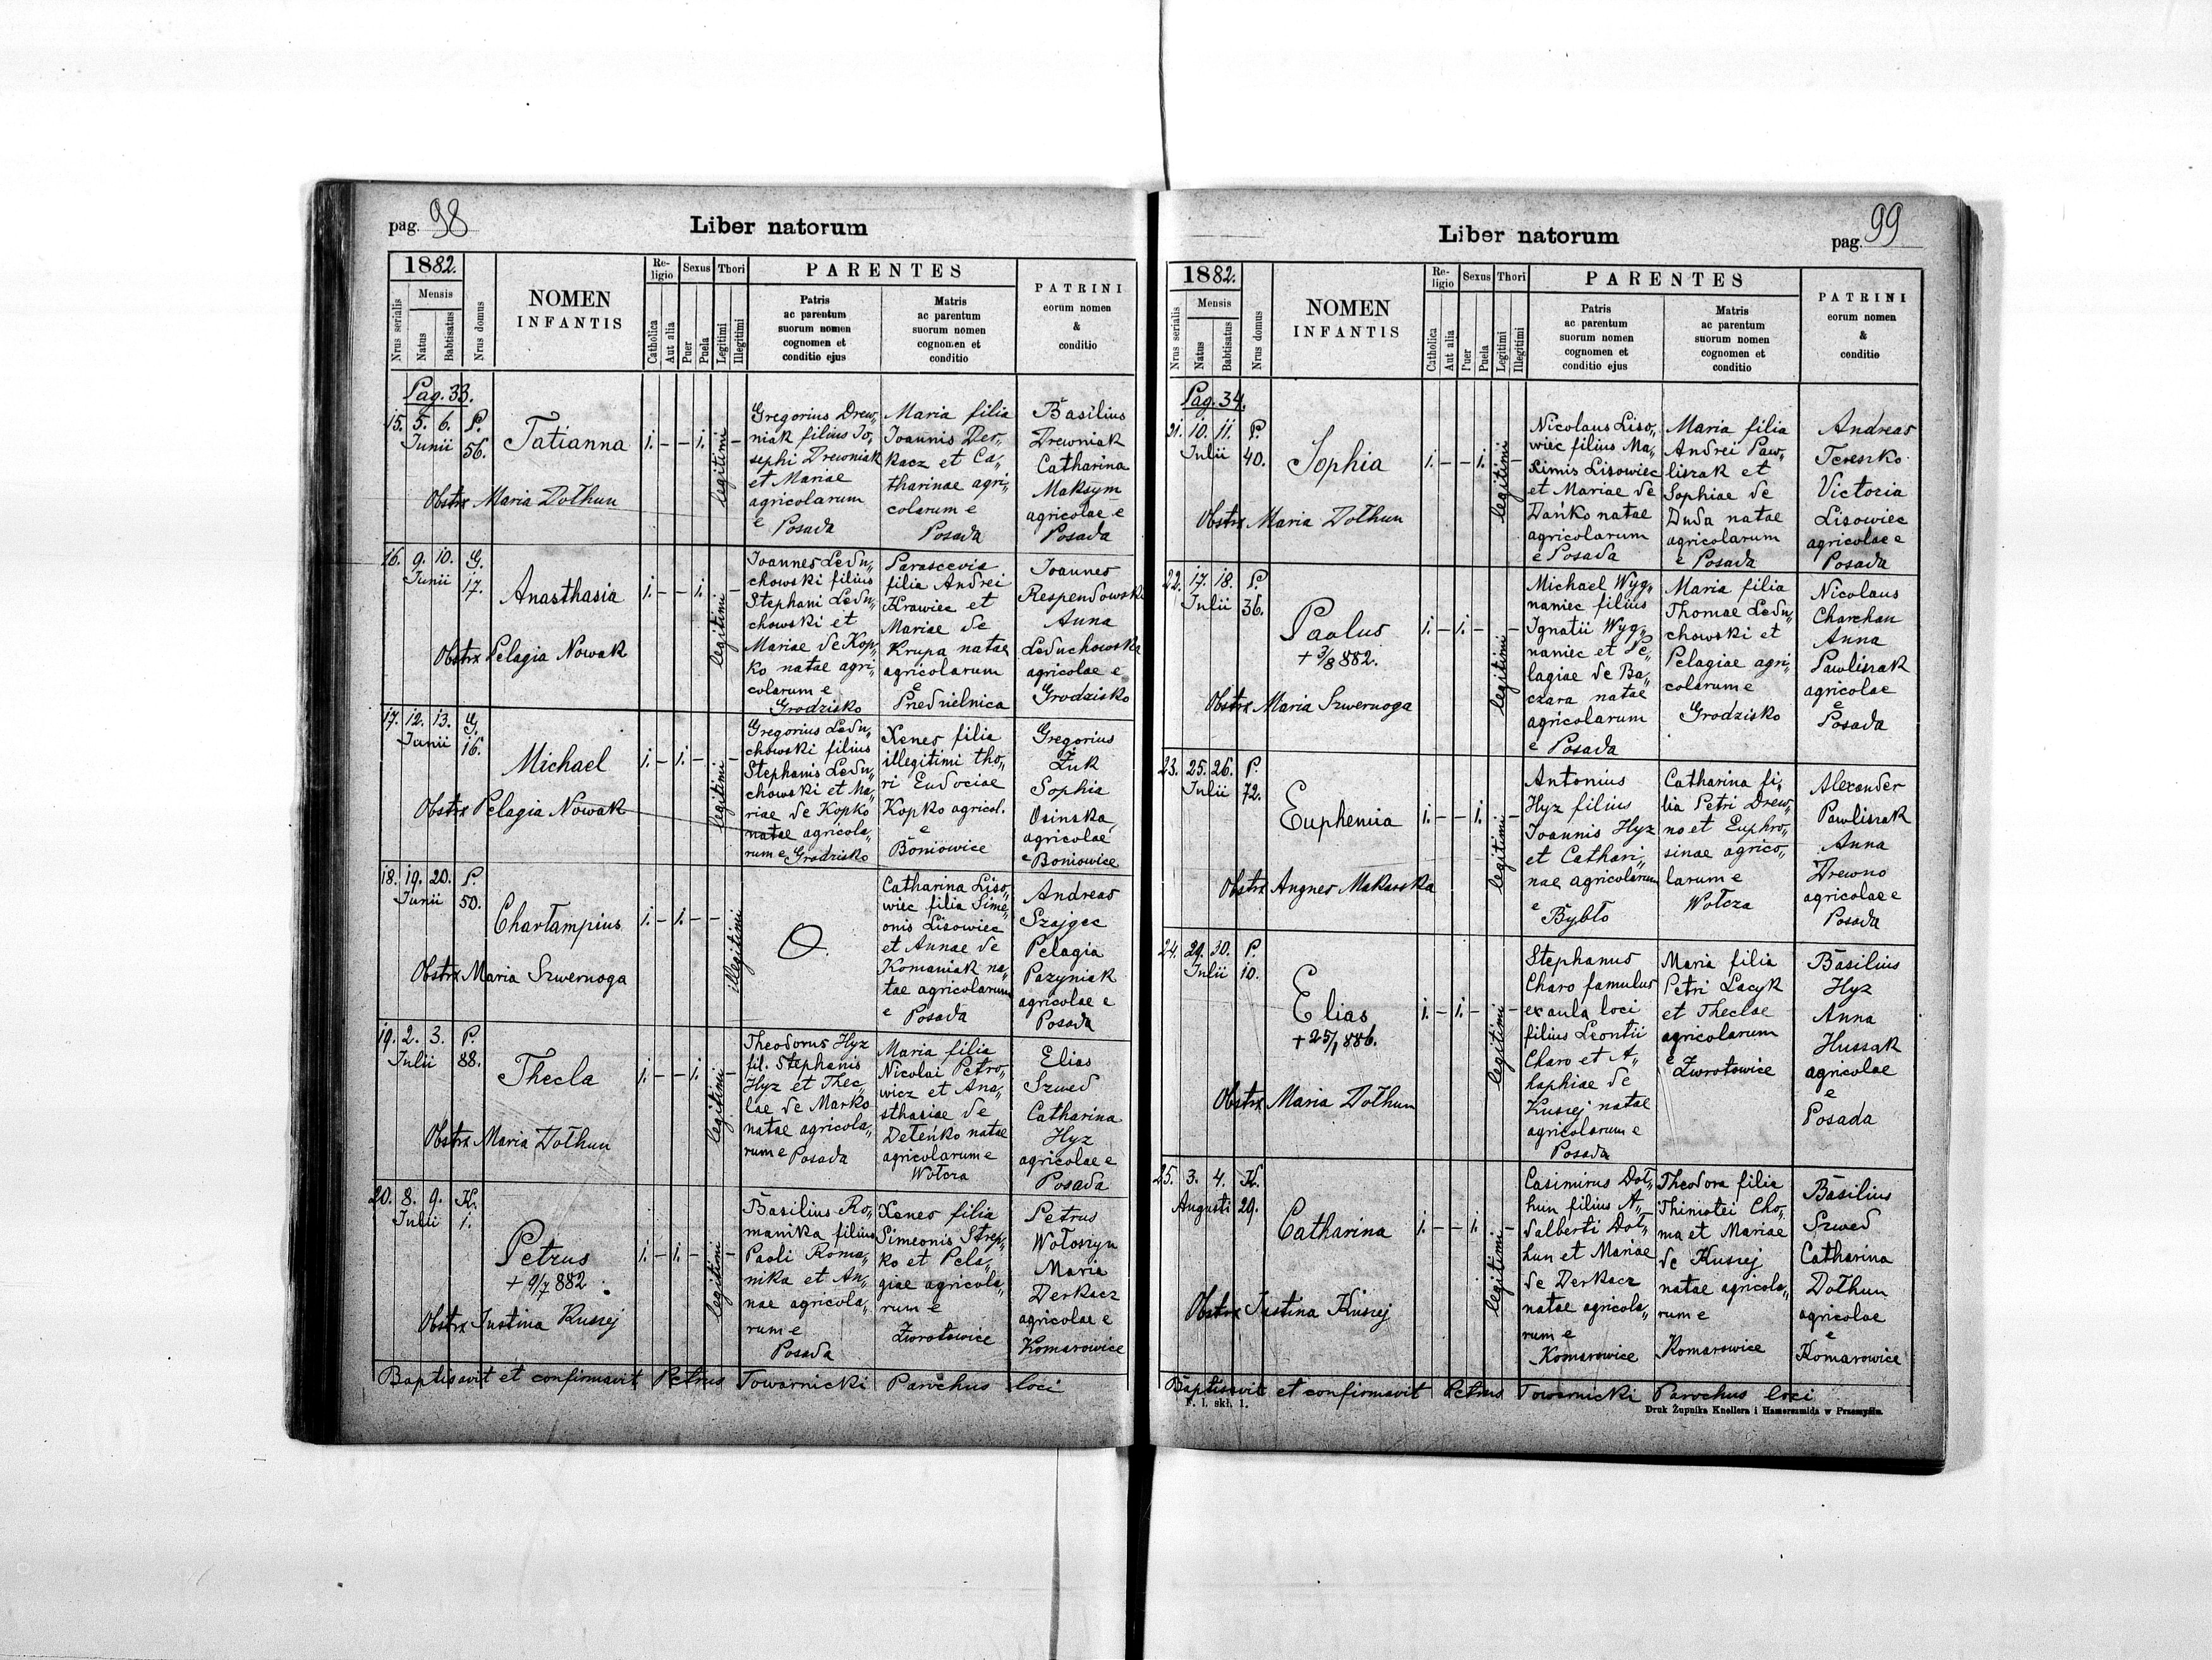 pag. 98
Liber natorum
1882.
Nrus serialis
Mensis
Natus
Babtisatus
Nrus domus
NOMEN
INFANTIS
Re-
ligio
Catholica
Aut alia
Sexus
Puer
Puela
Thori
Legitimi
Illegitimi
PARENTES
Patris
ac parentum
suorum nomen
cognomen et
conditio ejus
Matris
ac parentum
suorum nomen
cognomen et
conditio
PATRINI
eorum nomen
&
conditio
Pag. 33.
15. 5. 6. P.
Junii 56.
Tatianna
1. – – 1. legitimi –
Obstrx Maria Dołhun
Gregorius Drew„
niak filius Jo„
sephi Drewniak
et Mariae
agricolarum
e Posada
Maria filia
Joannis Der„
kacz et Ca„
tharinae agri„
colarum e
Posada
Basilius
Drewniak
Catharina
Maksym
agricolae e
Posada
16. 9. 10. G.
Junii 17.
Anasthasia
1. – – 1. legitimi –
Obstrx Pelagia Nowak
Joannes Ledu„
chowski filius
Stephani Ledu„
chowski et
Mariae de Kop„
ko natae agri„
colarum e
Grodzisko
Parascevia
filia Andrei
Krawiec et
Mariae de
Krupa natae
agricolarum
e
Przedzielnica
Joannes
Respendowski
Anna
Leduchowska
agricolae e
Grodzisko
17. 12. 13. G.
Junii 16.
Michael
1. – 1. – legitimi –
Obstrx Pelagia Nowak
Gregorius Ledu„
chowski filius
Stephanis Ledu„
chowski et Ma„
riae de Kopko
natae agricola„
rum e Grodzisko
Xenes filia
illegitimi tho„
ri Eudociae
Kopko agricol.
e
Boniowice
Gregorius
Żuk
Sophia
Osinska
agricolae
e Boniowice
18. 19. 20. P.
Junii 50.
Charłampius
1. – 1. – – illegitimi
Obstrx Maria Szwernoga
Catharina Liso„
wiec filia Sime„
onis Lisowiec
et Annae de
Komaniak na„
tae agricolarum
e Posada
Andreas
Szajgec
Pelagia
Pazyniak
agricolae e
Posada
19. 2. 3. P.
Julii 88.
Thecla
1. – – 1. legitimi –
Obstrx Maria Dołhun
Theodorus Hyz
fil. Stephanis
Hyz et Thec„
lae de Marko
natae agricola„
rum e Posada
Maria filia
Nicolai Petro„
wicz et Ana„
sthasiae de
Deteńko natae
agricolarum e
Wołcza
Elias
Szwed
Catharina
Hyz
agricolae e
Posada
20. 8. 9. K.
Julii 1.
Petrus
+ 9/7 882
1. – 1. – legitimi –
Obstrx Justina Kuszej
Basilius Ro„
manika filius
Paoli Roma„
nika et An„
nae agricola„
rum e
Posada
Xenes filia
Simeonis Strep„
ko et Pela„
giae agricola„
rum e
Zwrotowice
Petrus
Wołoszyn
Maria
Derkacz
agricolae e
Komarowice
Baptisavit et confirmavit Petrus Towarnicki Parochus loci
pag. 99
Liber natorum
1882.
Nrus serialis
Mensis
Natus
Babtisatus
Nrus domus
NOMEN
INFANTIS
Re-
ligio
Catholica
Aut alia
Sexus
Puer
Puela
Thori
Legitimi
Illegitimi
PARENTES
Patris
ac parentum
suorum nomen
cognomen et
conditio ejus
Matris
ac parentum
suorum nomen
cognomen et
conditio
PATRINI
eorum nomen
&
conditio
Pag. 34.
21. 10. 11. P.
Julii 40.
Sophia
1. – – 1. legitimi –
Obstrx Maria Dołhun
Nicolaus Liso„
wiec filius Ma„
ximis Lisowiec
et Mariae de
Dańko natae
agricolarum
e Posada
Maria filia
Andrei Paw„
liszak et
Sophiae de
Duda natae
agricolarum
e Posada
Andreas
Tereszko
Victoria
Lisowiec
agricolae e
Posada
22. 17. 18. P.
Julii 36.
Paolus
+ 3/8 882.
1. – 1. – legitimi –
Obstrx Maria Szwernoga
Michael Wyg„
naniec filius
Ignatii Wyg„
naniec et Pe„
lagiae de Ba„
czara natae
agricolarum
e Posada
Maria filia
Thomae Ledu„
chowski et
Pelagiae agri„
colarum e
Grodzisko
Nicolaus
Charchan
Anna
Pawliszak
agricolae
e
Posada
23. 25. 26. P.
Julii 72.
Euphemia
1. – – 1. legitimi –
Obstrx Angnes Makarska
Antonius
Hyz filius
Joannis Hyz
et Cathari„
nae agricolarum
e
Bybło
Catharina fi„
lia Petri Drew„
no et Euphro„
sinae agrico„
larum e
Wołcza
Alexander
Pawliszak
Anna
Drewno
agricolae e
Posada
24. 29. 30. P.
Julii 10.
Elias
+ 25/1 886.
1. – 1. – legitimi –
Obstrx Maria Dołhun
Stephanus
Charo famulus
ex aula loci
filius Leontii
Charo et A„
haphiae de
Kuszej natae
agricolarum e
Posada
Maria filia
Petri Lacyk
et Theclae
agricolarum
e
Zwrotowice
Basilius
Hyz
Anna
Hussak
agricolae
e
Posada
25. 3. 4. K.
Augusti 29.
Catharina
1. – – 1. legitimi –
Obstrx Justina Kuszej
Casimirus Doł„
hun filius A„
dalberti Doł„
hun et Mariae
de Derkacz
natae agricola„
rum e
Komarowice
Theodora filia
Thimotei Cho„
ma et Mariae
de Kuszej
natae agricola„
rum e
Komarowice
Basilius
Szwed
Catharina
Dołhun
agricolae
e
Komarowice
Baptisavit et confirmavit Petrus Towarnicki Parochus loci
F. l. skł. 1.
Druk Żupnika Knollera i Hamerszmida w Przemyślu.